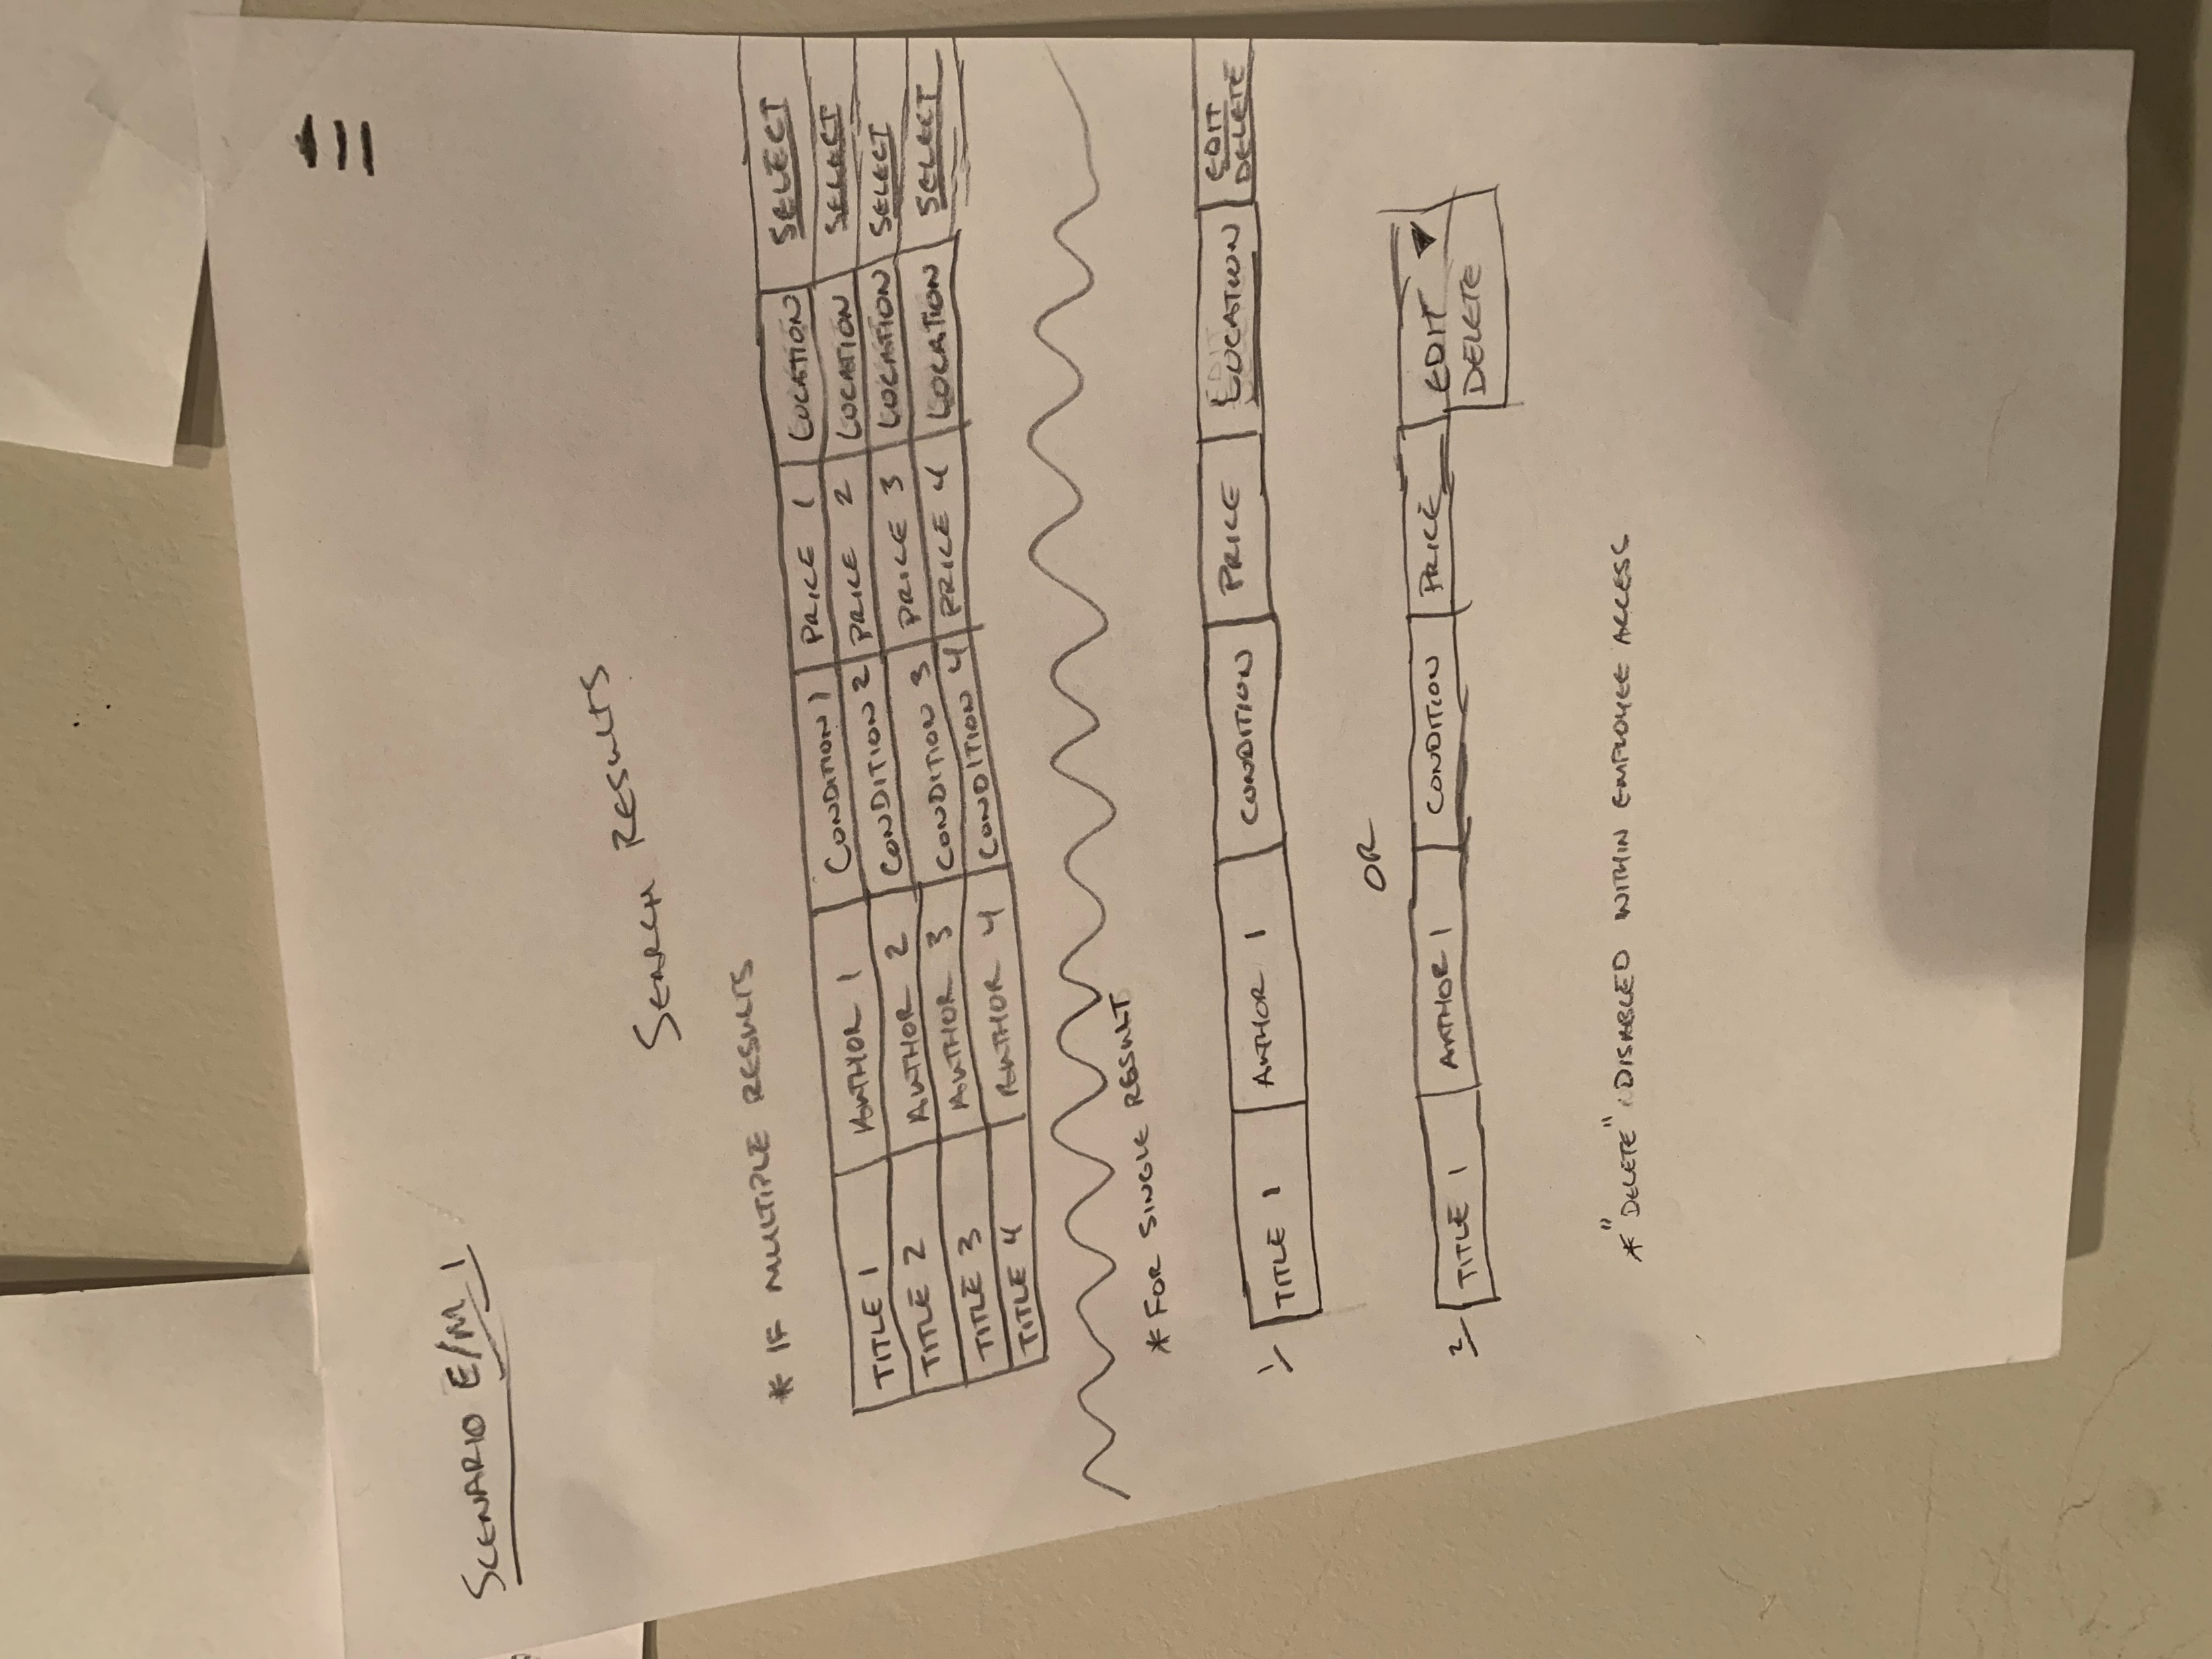 SCENARIO E/M 1
SEARCH RESULTS
* IF MULTIPLE RESULTS
TITLE 1 AUTHOR 1 CONDITION 1 PRICE 1 LOCATION SELECT
TITLE 2 AUTHOR 2 CONDITION 2 PRICE 2 LOCATION SELECT
TITLE 3 AUTHOR 3 CONDITION 3 PRICE 3 LOCATION SELECT
TITLE 4 AUTHOR 4 CONDITION 4 PRICE 4 LOCATION SELECT
* FOR SINGLE RESULT
1/ TITLE 1 AUTHOR 1 CONDITION PRICE LOCATION EDIT
DELETE
OR
2/ TITLE 1 AUTHOR 1 CONDITION PRICE EDIT ▼
DELETE
* "DELETE" DISABLED WITHIN EMPLOYEE ACCESS